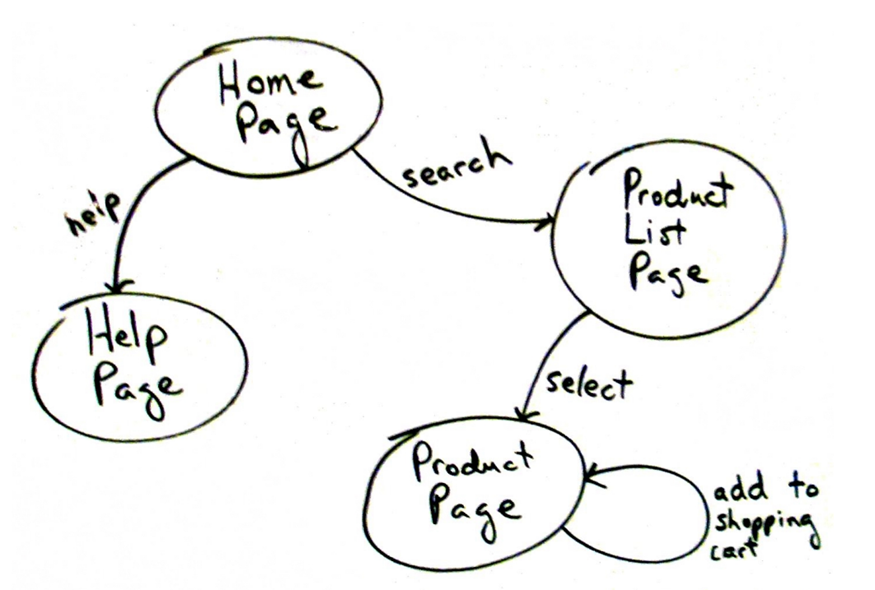 Home
Page
search
help
Product
List
Page
Help
Page
select
Product
Page
add to
shopping
cart